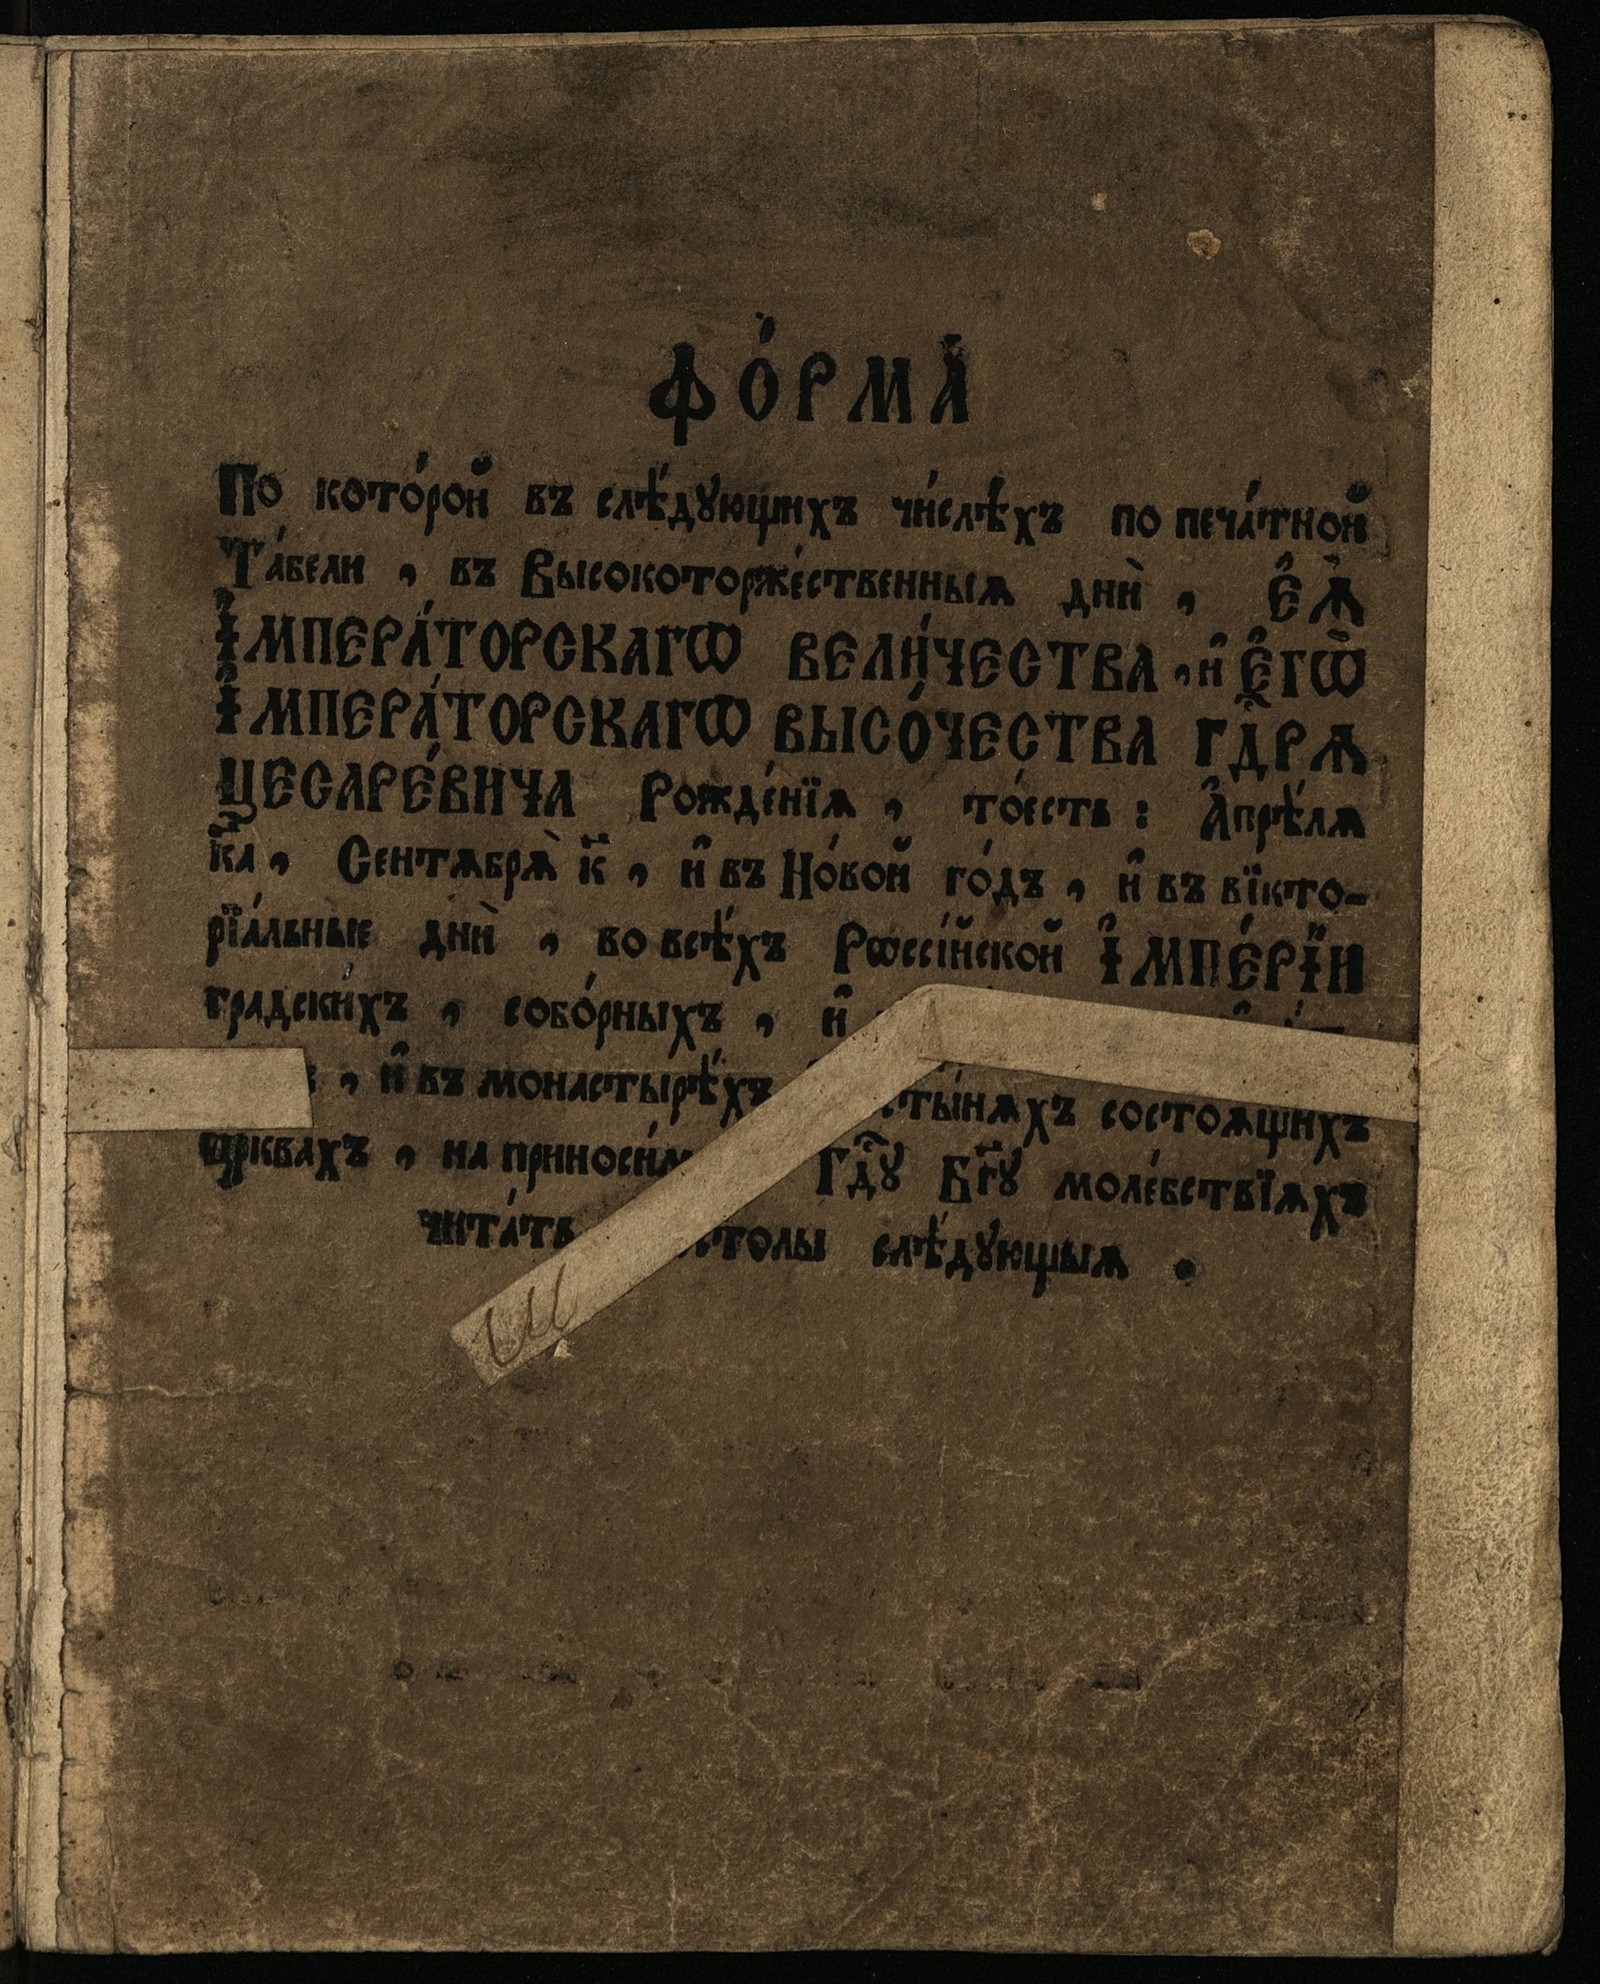 ФО́РМА̀
По кото́рой въ слѣ́дующихъ чи́слѣхъ по печа́тной
Та́бели , въ Высокоторже́ственныѧ дни̑ , Є҆Ѧ̀
І҆МПЕРА́ТОРСКАГѠ ВЕЛИ́ЧЕСТВА , и҆ Є҆ГѠ̀
І҆МПЕРА́ТОРСКАГѠ ВЫСО́ЧЕСТВА ГДⷭ҇РѦ
ЦЕСАРЕ́ВИЧА Рожде́нїѧ , то́есть : А҆прѣ́лѧ
к҃а , Сентѧбрѧ̀ к҃ , и҆ въ Но́вой го́дъ , и҆ въ вїкто-
рїа́льные дни̑ , во всѣ́хъ Рѡссі́йской І҆МПЕ́РЇИ
градски́хъ , собо́рныхъ , и҆
, и҆ въ монастырѣ́хъ состоѧщихъ
црквахъ , на Гдⷭ҇у Бг҃у моле́бствїѧхъ
чита́ть слѣ́дующыѧ .